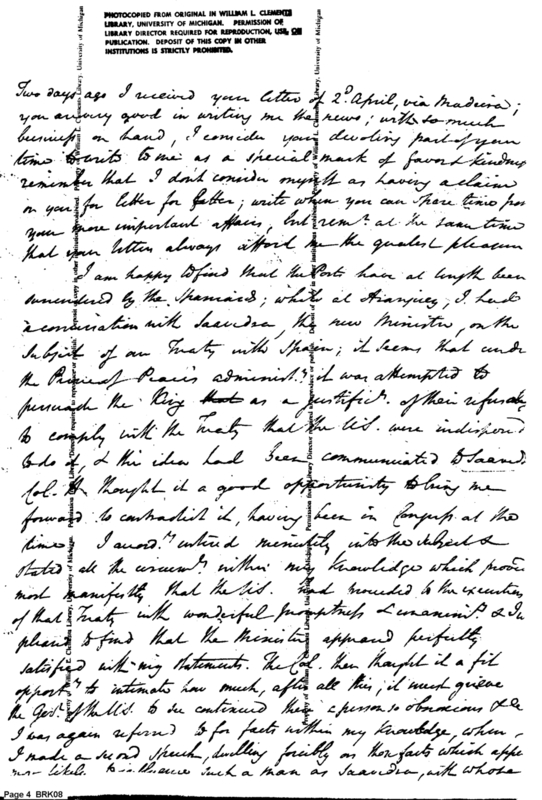 PHOTOCOPIED FROM ORIGINAL IN WILLIAM L. CLEMENTS
LIBRARY, UNIVERSITY OF MICHIGAN. PERMISSION OF
LIBRARY DIRECTOR REQUIRED FOR REPRODUCTION, USE, OR
PUBLICATION. DEPOSIT OF THIS COPY IN OTHER
INSTITUTIONS IS STRICTLY PROHIBITED.
Two days ago I received your letter of 2d. April, via Madeira;
you are very good in writing me the news; with so much
business on hand, I consider your devoting part of your
time to write to me as a special mark of favor & kindness
remember that I dont consider myself as having a claim
on you for letter for letter; write when you can spare time from
your more important affairs, but remr. at the same time
that your letters always afford me the greatest pleasure
I am happy to find that the Posts have at length been
surrendered by the Spaniards; while at Aranjuez, I had
a conversation with Saavedra, the new Minister, on the
subject of our Treaty with Spain; it seems that under
the Prince of Peace's administn. it was attempted to
persuade the King that as a justificn. of their refusal
to comply with the Treaty that the U.S. were indisposed
to do it, & this idea had been communicated to Saavedra
Col. H. thought it a good opportunity to bring me
forward to contradict it, having been in Congress at the
time. I accordy. entered minutely into the subject &
stated all the circumsts. within my knowledge which proved
most manifestly that the U.S. had proceeded to the execution
of that Treaty with wonderful promptness & unanimity. & I was
pleased to find that the Minister appeared perfectly
satisfied with my statements. The Col. then thought it a fit
opporty. to intimate how much, after all this, it must grieve
the Govt. of the U.S. to see continued there a person so obnoxious &c
I was again referred to for facts within my knowledge, when
I made a second speech, dwelling forcibly on those facts which appeared
most likely to influence such a man as Saavedra, with whose
Page 4 BRK08